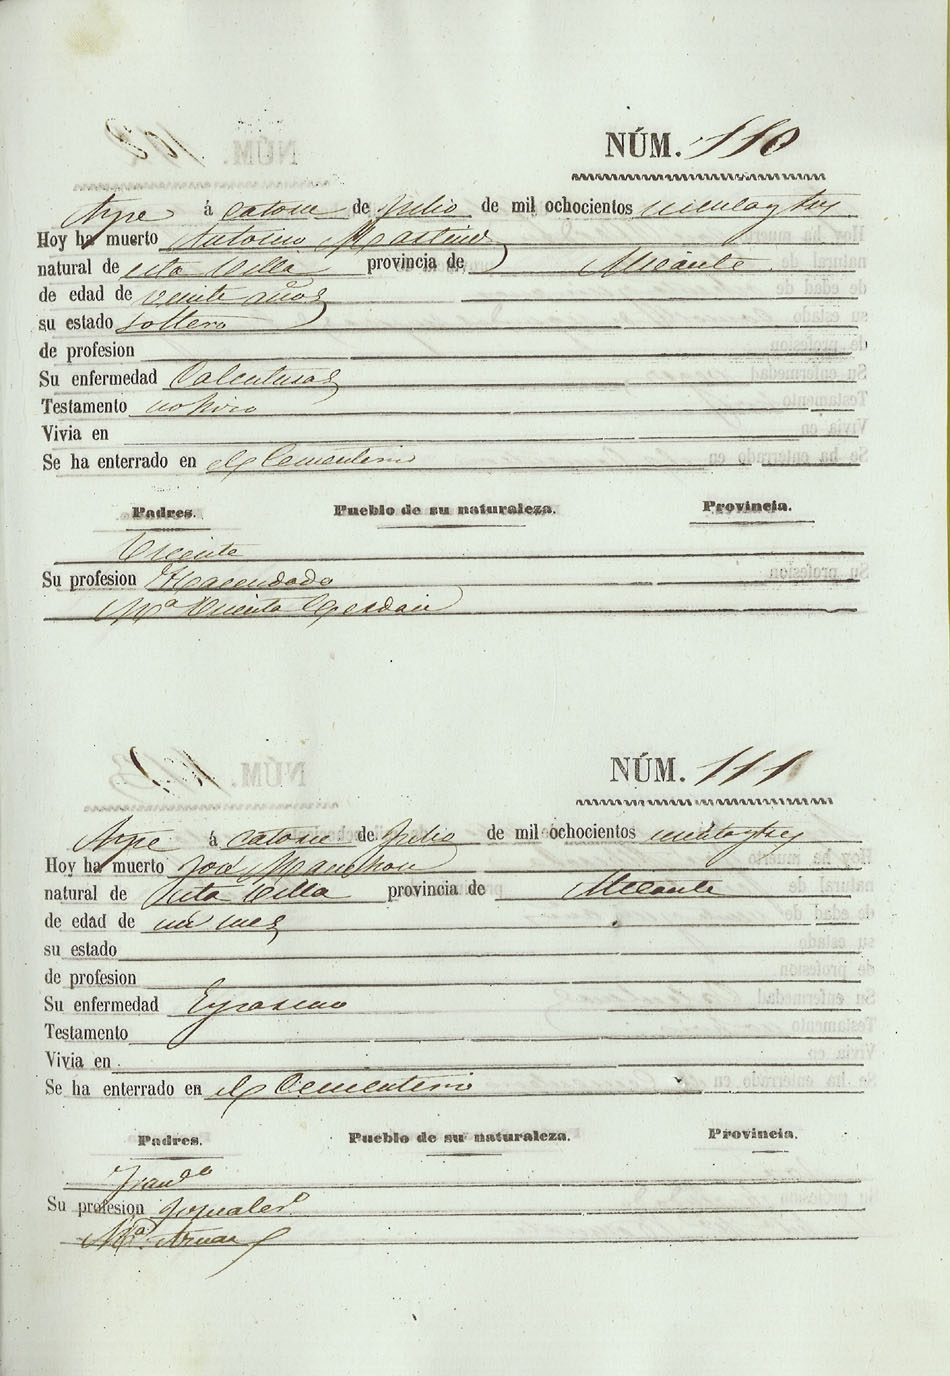 NÚM. 110
Aspe á catorce de Julio de mil ochocientos
Hoy ha muerto Antonio Martinez
natural de esta Villa provincia de Alicante
de edad de veinte años
su estado soltero
de profesion
Su enfermedad Calenturas
Testamento no hizo
Vivia en
Se ha enterrado en el Cementerio
Padres. Pueblo de su naturaleza. Provincia.
Vicente
Su profesion Hacendado
Mª Vicenta
NÚM. 111
Aspe á catorce de Julio de mil ochocientos
Hoy ha muerto José Manchon
natural de esta Villa provincia de Alicante
de edad de un mes
su estado
de profesion
Su enfermedad
Testamento
Vivia en
Se ha enterrado en el Cementerio
Padres. Pueblo de su naturaleza. Provincia.
Franco
Su profesion
Mª